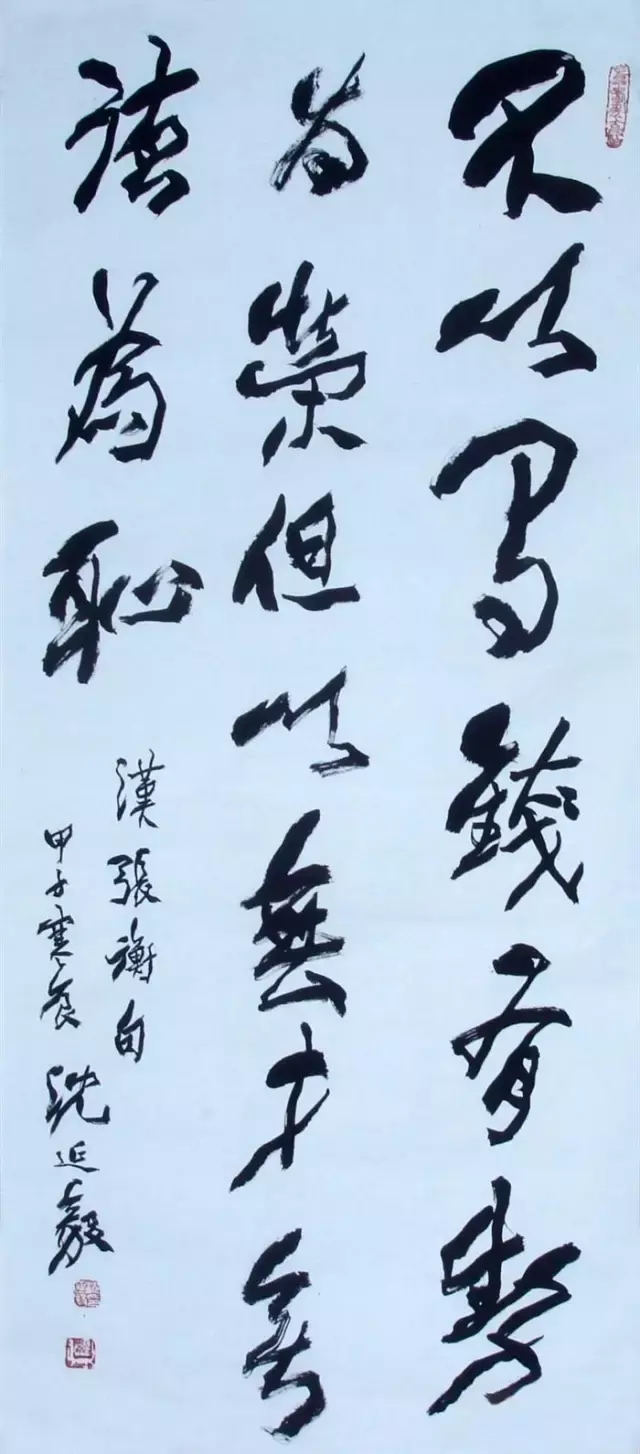 不以有錢有勢
为榮但以無才無
德為恥
漢張衡句
甲子寒食 沈延毅